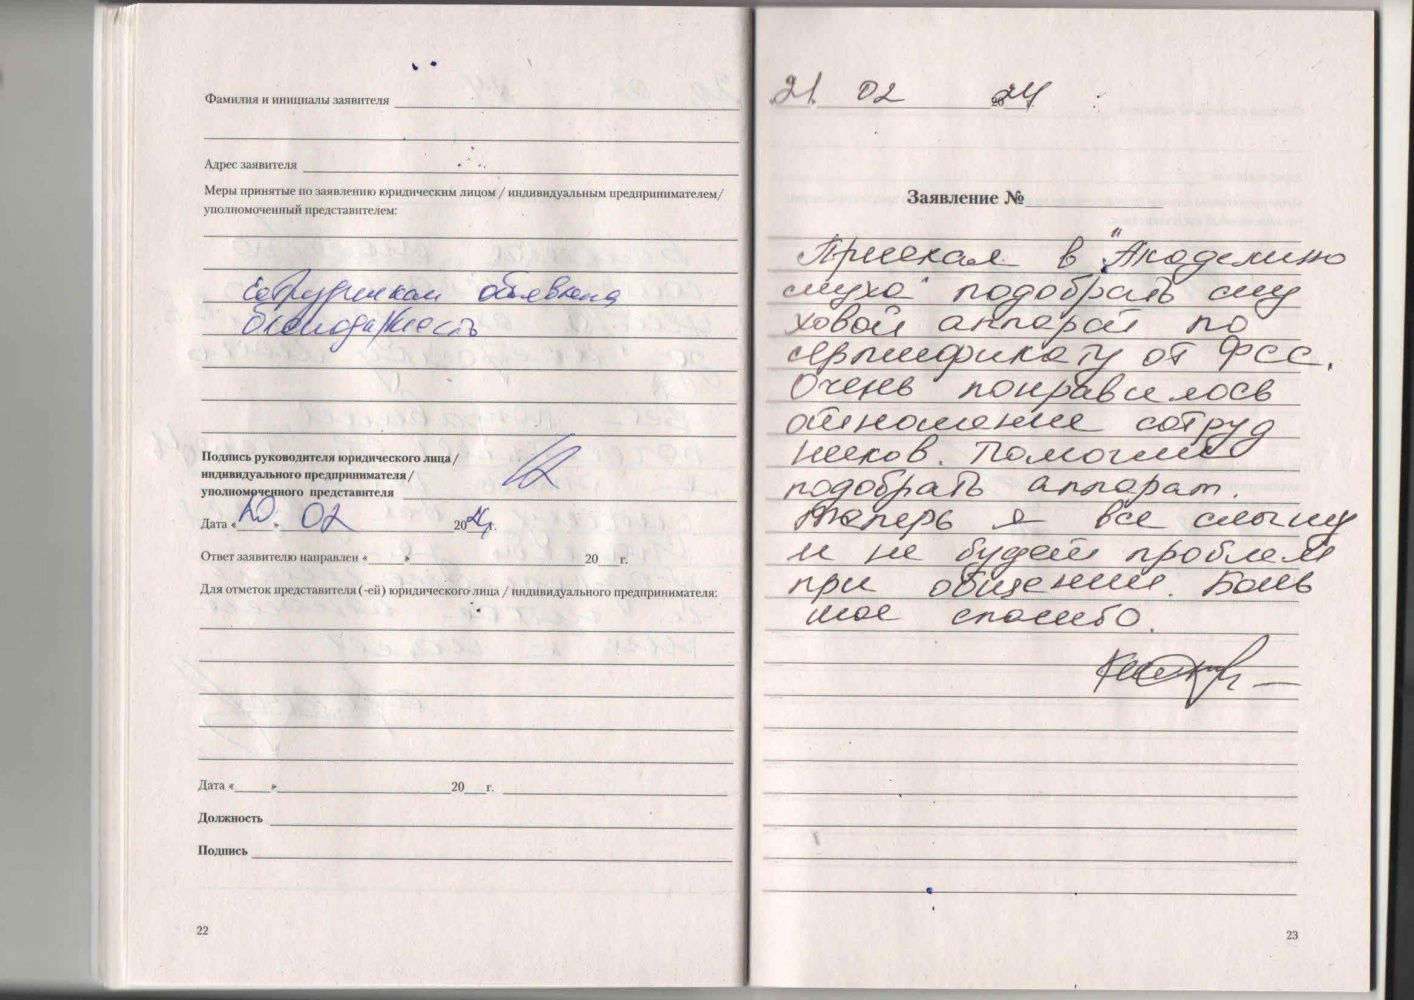 Фамилия и инициалы заявителя
Адрес заявителя
Меры принятые по заявлению юридическим лицом / индивидуальным предпринимателем/
уполномоченный представителем:
Сотрудникам объявлена
благодарность
Подпись руководителя юридического лица/
индивидуального предпринимателя/
уполномоченного представителя
Дата «20» 02 2024г.
Ответ заявителю направлен «____» 20___г.
Для отметок представителя (-ей) юридического лица / индивидуального предпринимателя:
Дата «____» 20___г.
Должность
Подпись
22
21 02 2024
Заявление №
Приехал в "Академию
слуха" подобрать слу
ховой аппарат по
сертификату от ФСС.
Очень понравилось
отношение сотруд
ников. Помогли
подобрать аппарат.
Теперь я все слышу
и не будет проблем
при общении. Боль
шое спасибо.
23